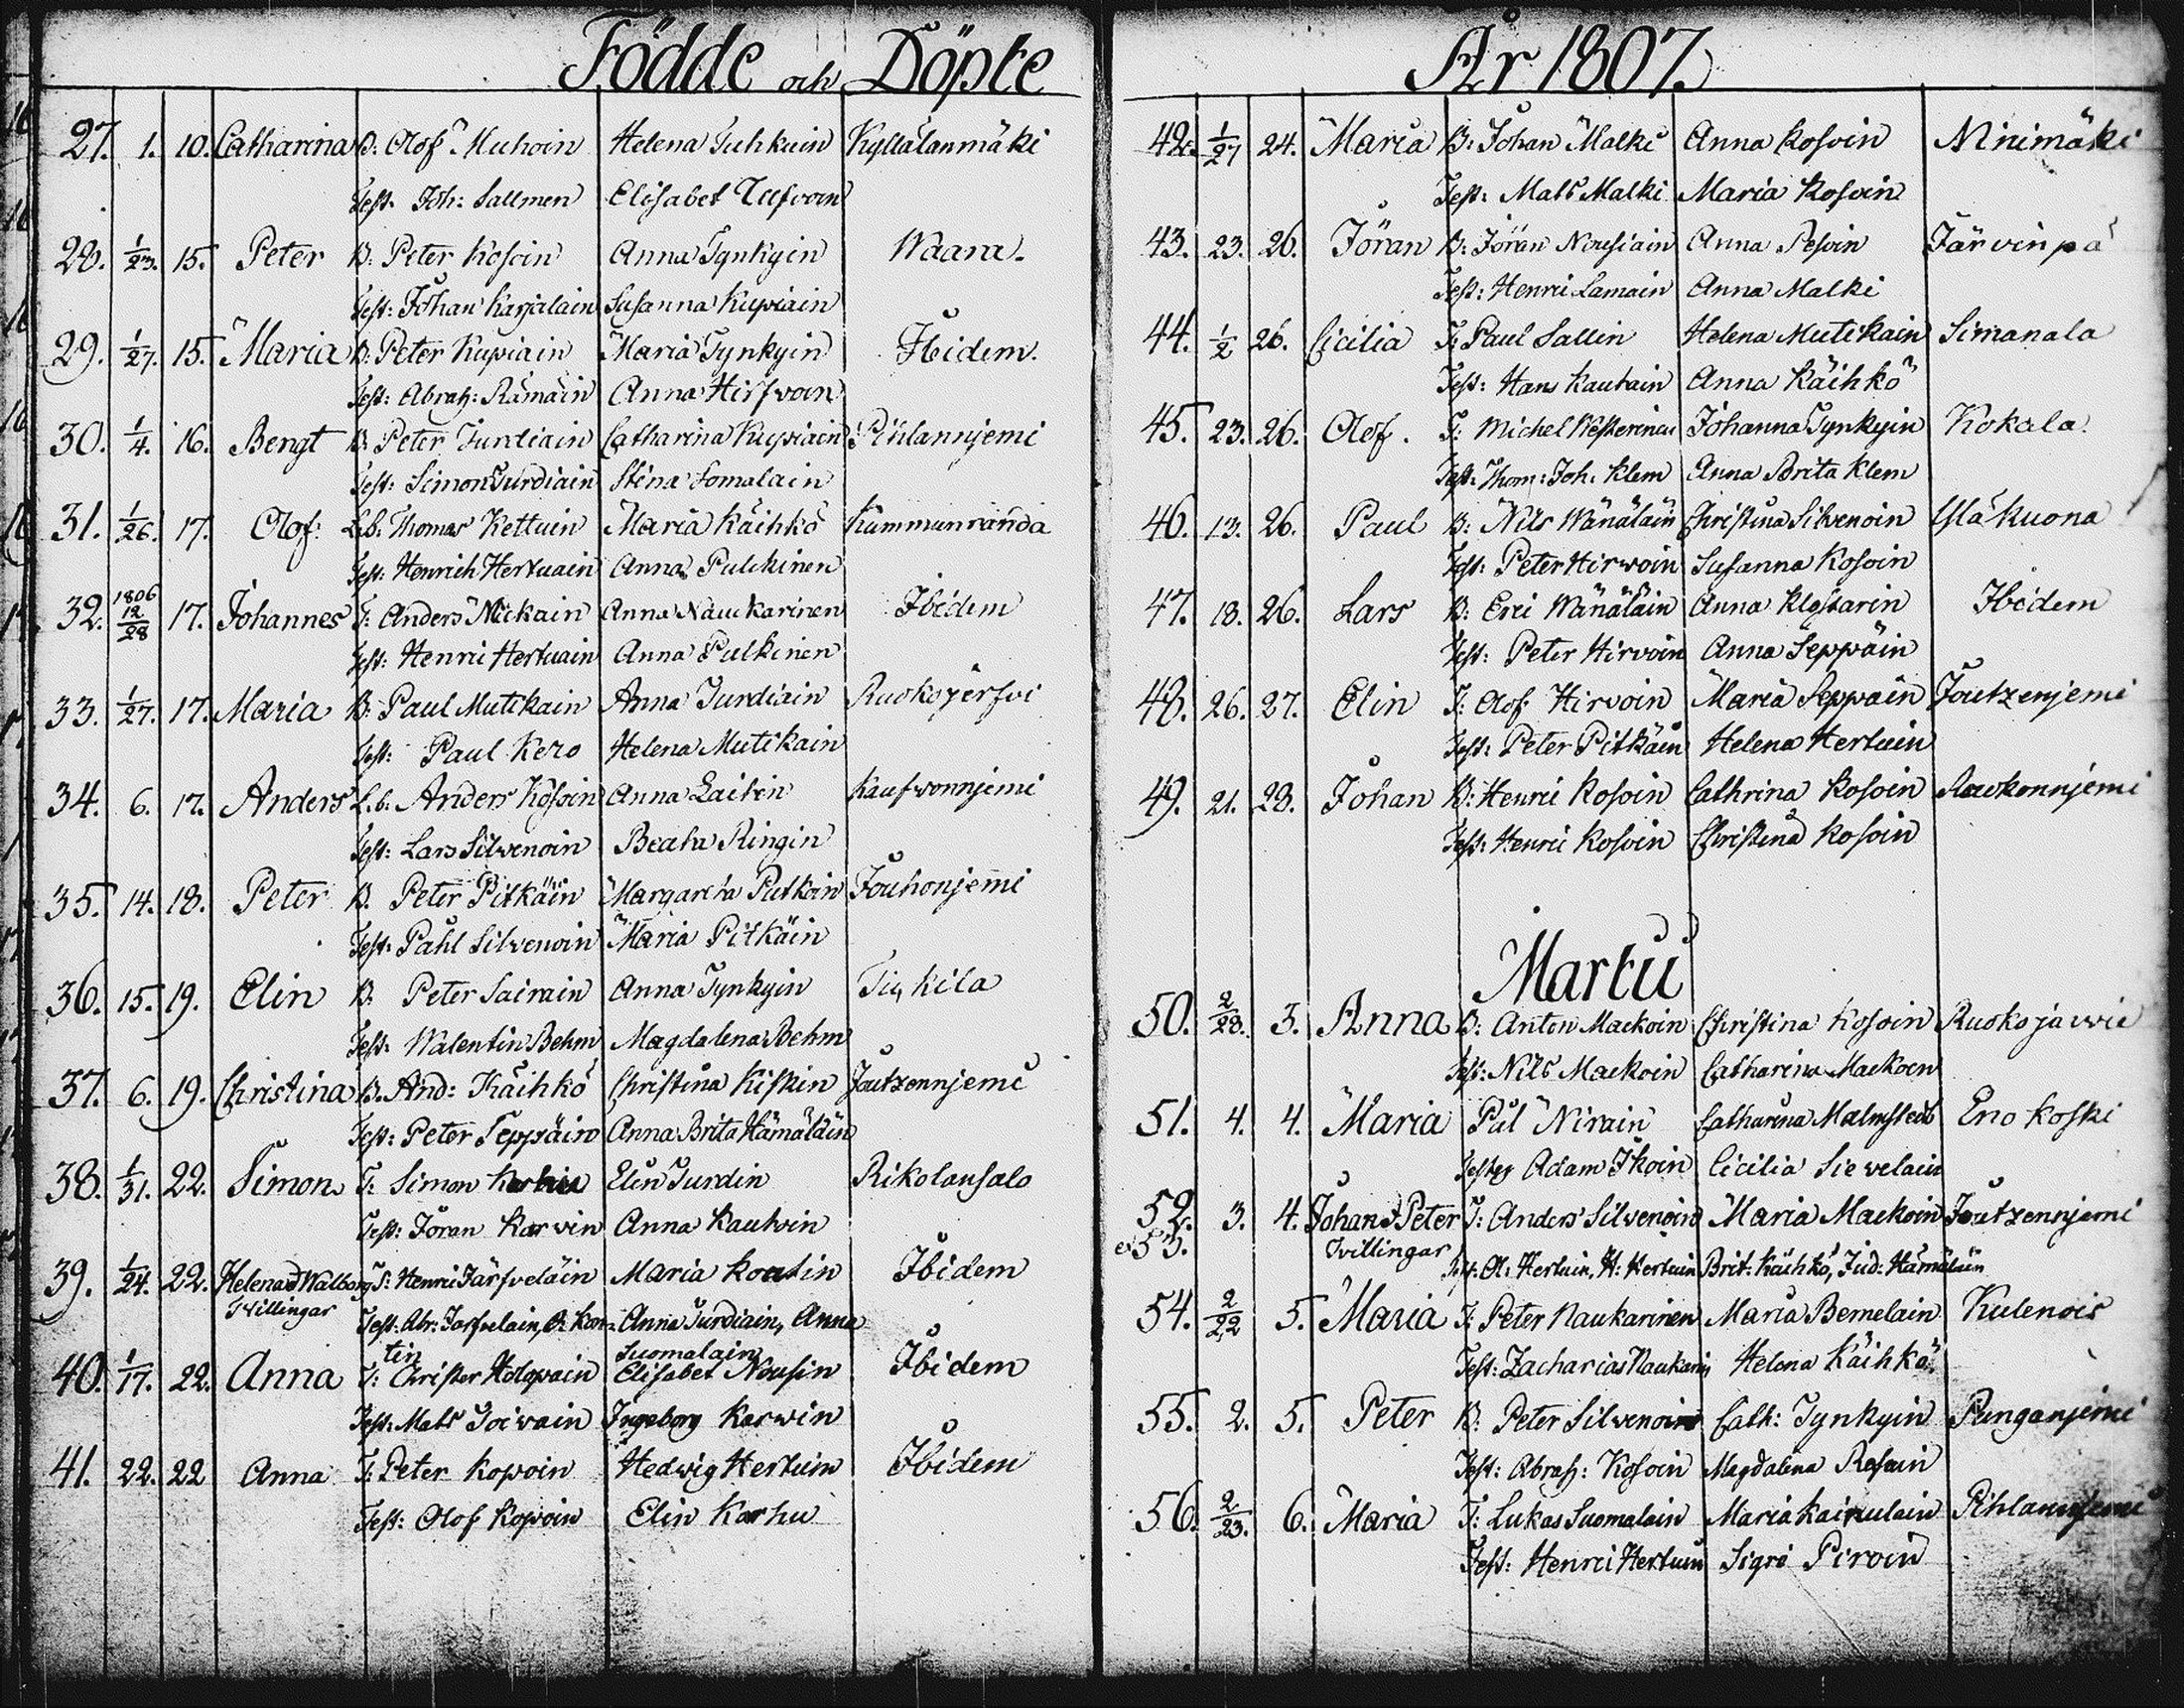 Födde och Döpte
27. 1. 10. Catharina B: Olof Muhoin Helena Tuhkuin Kyllälanmäki
Test. Joh: Sallmen Elisabet Ulfvoin
28. 1/23. 15. Peter B: Peter Kosoin Anna Tynkyin Waara.
Test: Johan Karjalain Susanna Kupiain
29. 1/27. 15. Maria B: Peter Kupiain Maria Tynkyin Ibidem.
Test: Abrah: Rämäin Anna Hirfvoin
30. 1/4. 16. Bengt B: Peter Turdiain Catharina Kupiain Pihlannjemi
Test: Simon Turdiain Stina Somalain
31. 1/26. 17. Olof: L.b. Thomas Kettuin Maria Käihkö Kummunranda
Test: Henrich Hertuain Anna Pulckinen
32. 1806 12/28 17. Johannes T: Anders Mickain Anna Nauckarinen Ibidem
Test: Henric Hertuain Anna Pulkinen
33. 1/27. 17. Maria B: Paul Mutikain Anna Turdiain Ruokojerfvi
Test: Paul Kero Helena Mutikain
34. 6. 17. Anders L.b. Anders Kosoin Anna Laitin Kaufvonnjemi
Test: Lars Silvenoin Beata Ringin
35. 14. 18. Peter B. Peter Pitkäin Margareta Putkoin Jouhonjemi
Test: Pahl Silvenoin Maria Pitkäin
36. 15. 19. Elin B. Peter Sairain Anna Tynkyin
Test: Walentin Behm Magdalena Behm
37. 6. 19. Christina B. And: Käihkö Christina Kiskin Joutzennjemi
Test: Peter Seppäin Anna Brita Hämäläin
38. 1/31. 22. Simon T: Simon Karhu Elin Turdin Rikolansalo
Test: Jöran Karvin Anna Kautoin
39. 1/24. 22. Helena & Walborg T: Henric Järfveläin Maria Koatin Ibidem
Tvillingar Test: Abr: Jarfvelain, O: Koa- Anna Turdiain, Anna
tin Suomalain
40. 1/17. 22. Anna T: Christer Holopain Elisabet Nousin Ibidem
Test: Mats Toivain Ingeborg Karwin
41. 22. 22 Anna T: Peter Kopoin Hedwig Hertuin Ibidem
Test: Olof Kopoin Elin Karhu
År 1807.
42. 1/27 24. Maria B: Johan Malki Anna Kosoin Mnimäki
Test: Mats Malki Maria Kosoin
43. 23. 26. Jöran B: Jöran Nousiain Anna Pesoin Järvinpä
Test: Henric Lamain Anna Malki
44. 1/2 26. Cicilia T: Paul Sallin Helena Mutikain Simanala
Test: Hans Kautain Anna Käihkö
45. 23. 26. Olof. T: Michel Westerinen Johanna Tynkyin Kokala.
Test: Thom: Joh: Klem Anna Brita Klem
46. 13. 26. Paul B: Nils Wänäläin Christina Silvenoin Ylä Kuona
Test: Peter Hirwoin Susanna Kosoin
47. 18. 26. Lars B: Eric Wänäläin Anna Klostarin Ibidem
Test: Peter Hirvoin Anna Seppäin
48. 26. 27. Elin T: Olof Hirvoin Maria Seppäin Joutzenjemi
Test: Peter Pitkäin Helena Hertuin
49. 21. 28. Johan B: Henric Kosoin Cathrina Kosoin Raukonnjemi
Test: Henric Kosoin Christina Kosoin
Martii
50. 2/28. 3. Anna B: Anton Mackoin Christina Kosoin Ruokojarvie
Test: Nils Mackoin Catharina Mackoin
51. 4. 4. Maria Pål Nirain Catharina Malmstedt Eno koski
Testes Adam Ikoin Cicilia Sievelain
52. 3. 4. Johan & Peter T: Anders Silvenoin Maria Mackoin Joutzennjemi
& 53. Tvillingar Test: Ol: Hertuin, H: Hertuin Brit: Käihkö, Jud: Hämäläin
54. 2/22 5. Maria T: Peter Naukarinen Maria Bernelain Kulenois
Test: Zacharias Naukarin Helena Käihkö
55. 2. 5. Peter B: Peter Silvenoin Cath: Tynkyin Punganjemi
Test: Abrah: Kosoin Magdalena Rosain
56. 2/23. 6. Maria T: Lukas Suomalain Maria Kainulain Pihlannjemi
Test: Henric Hertuin Sigri Piroin